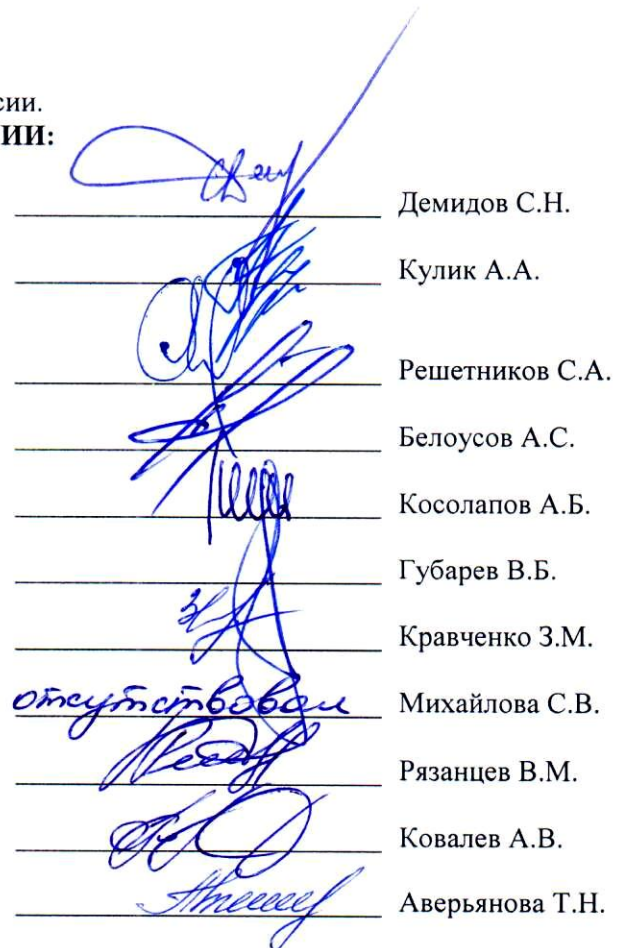 сии.
ИИ:
Демидов С.Н.
Кулик А.А.
Решетников С.А.
Белоусов А.С.
Косолапов А.Б.
Губарев В.Б.
Кравченко З.М.
отсутствовал Михайлова С.В.
Рязанцев В.М.
Ковалев А.В.
Аверьянова Т.Н.